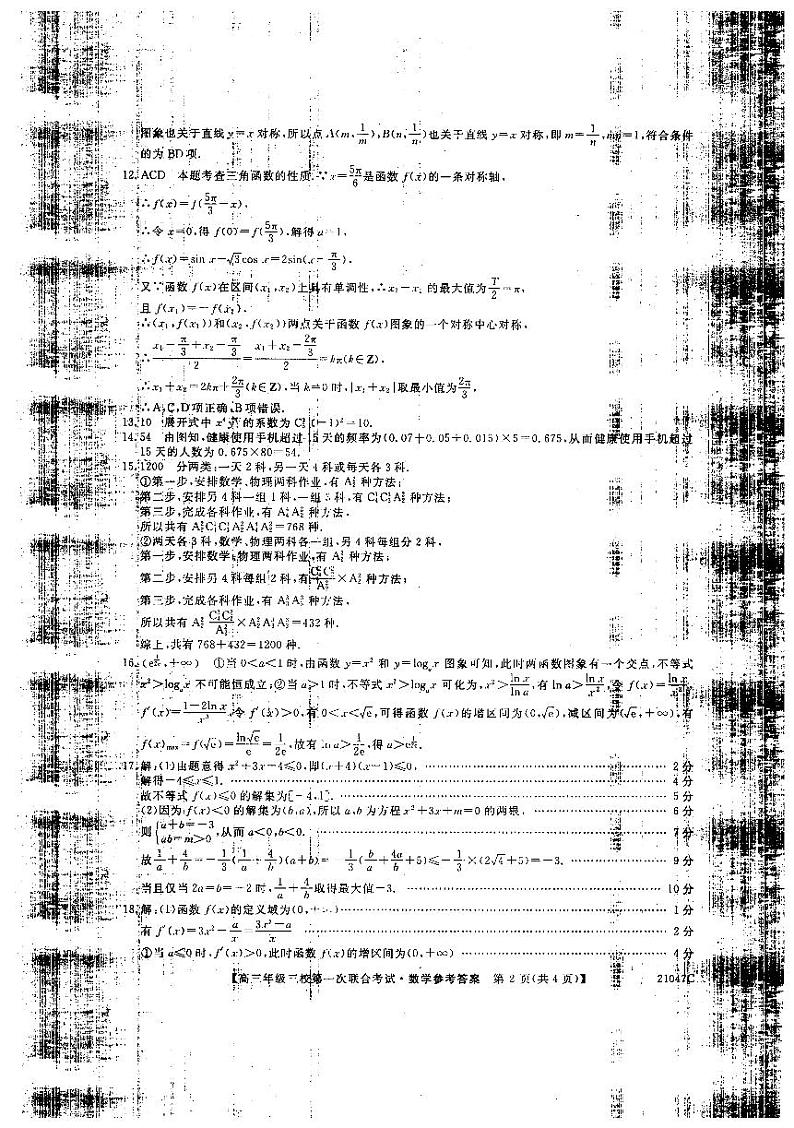 图象也关于直线 y=x 对称,所以点 A(m, 1/m),B(n, 1/n)也关于直线 y=x 对称,即 m=1/n,mn=1,符合条件
的为 BD 项.
12. ACD 本题考查三角函数的性质.∵x=5π/6是函数 f(x)的一条对称轴,
∴f(x)=f(5π/3-x),
∴令 x=0,得 f(0)=f(5π/3),解得 a=1,
∴f(x)=sin x-√3cos x=2sin(x-π/3).
又∵函数 f(x)在区间(x₁,x₂)上具有单调性,∴x₂-x₁ 的最大值为T/2=π,
且 f(x₁)=-f(x₂),
∴(x₁,f(x₁))和(x₂,f(x₂))两点关于函数 f(x)图象的一个对称中心对称,
∴(x₁-π/3+x₂-π/3)/2=(x₁+x₂-2π/3)/2=kπ(k∈Z),
∴x₁+x₂=2kπ+2π/3(k∈Z),当 k=0 时,|x₁+x₂|取最小值为2π/3,
∴A,C,D项正确,B项错误.
13. 10 展开式中 的系数为 (-1)²=10.
14. 54 由图知,健康使用手机超过 15 天的频率为(0.07+0.05+0.015)×5=0.675,从而健康使用手机超过
15 天的人数为 0.675×80=54.
15. 1200 分两类:一天 2 科,另一天 4 科或每天各 3 科.
①第一步,安排数学、物理两科作业,有 种方法;
第二步,安排另 4 科一组 1 科,一组 3 科,有 种方法;
第三步,完成各科作业,有 种方法.
所以共有 =768 种.
②两天各 3 科,数学、物理两科各一组,另 4 科每组分 2 科.
第一步,安排数学、物理两科作业,有 种方法;
第二步,安排另 4 科每组 2 科,有 种方法;
第三步,完成各科作业,有 种方法.
所以共有 =432 种.
综上,共有 768+432=1200 种.
16. (e^(1/2e),+∞) ①当 0<a<1 时,由函数 y=x² 和 y=logₐx 图象可知,此时两函数图象有一个交点,不等式
x²>logₐx 不可能恒成立;②当 a>1 时,不等式 x²>logₐx 可化为,x²>ln x/ln a,有 ln a>ln x/x²,令 f(x)=ln x/x²,
f′(x)=(1-2ln x)/x³,令 f′(x)>0,有 0<x<√e,可得函数 f(x)的增区间为(0,√e),减区间为(√e,+∞),有
f(x)max=f(√e)=ln√e/e=1/2e,故有 ln a>1/2e,得 a>e^(1/2e).
17. 解:(1)由题意得 x²+3x-4≤0,即(x+4)(x-1)≤0, …… 2 分
解得-4≤x≤1. …… 4 分
故不等式 f(x)≤0 的解集为[-4,1]. …… 5 分
(2)因为 f(x)<0 的解集为(b,a),所以 a,b 为方程 x²+3x+m=0 的两根, …… 6 分
则{a+b=-3 ab=m>0,从而 a<0,b<0. …… 7 分
故1/a+4/b=-1/3(1/a+4/b)(a+b)=-1/3(b/a+4a/b+5)≤-1/3×(2√4+5)=-3. …… 9 分
当且仅当 2a=b=-2 时,1/a+4/b取得最大值-3. …… 10 分
18. 解:(1)函数 f(x)的定义域为(0,+∞) …… 1 分
有 f′(x)=3x²-a/x=(3x³-a)/x …… 2 分
①当 a≤0 时,f′(x)>0,此时函数 f(x)的增区间为(0,+∞) …… 4 分
【高三年级三校第一次联合考试·数学参考答案 第 2 页(共 4 页)】 21047C